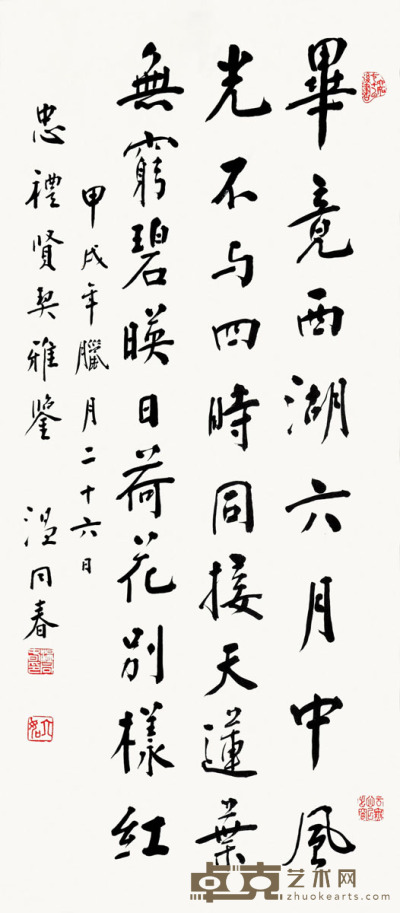 畢竟西湖六月中風
光不与四時同接天蓮葉
無窮碧暎日荷花別樣紅
甲戌年臘月二十六日
忠禮賢契雅鑒 温同春
卓克艺术网
zhuokearts.com